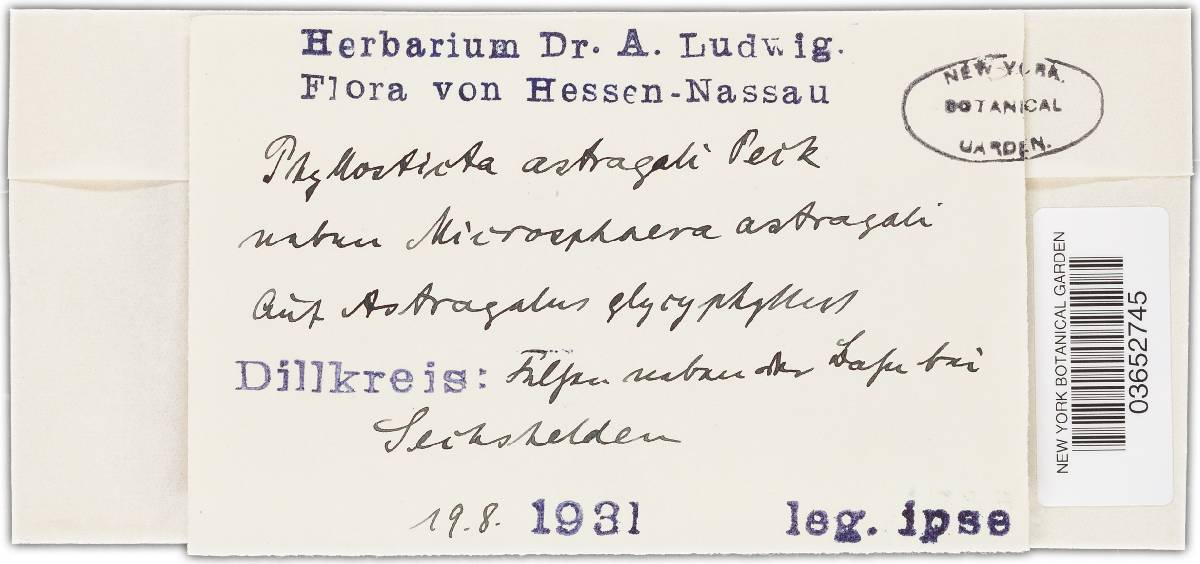 Herbarium Dr. A. Ludwig.
Flora von Hessen-Nassau
NEW YORK
BOTANICAL
GARDEN.
Phyllosticta astragali Peck
neben Microsphaera astragali
auf Astragalus glycyphyllus
Dillkreis: Felsen neben der Bahn bei
Sechshelden
19.8. 1931 leg. ipse
NEW YORK BOTANICAL GARDEN
03652745